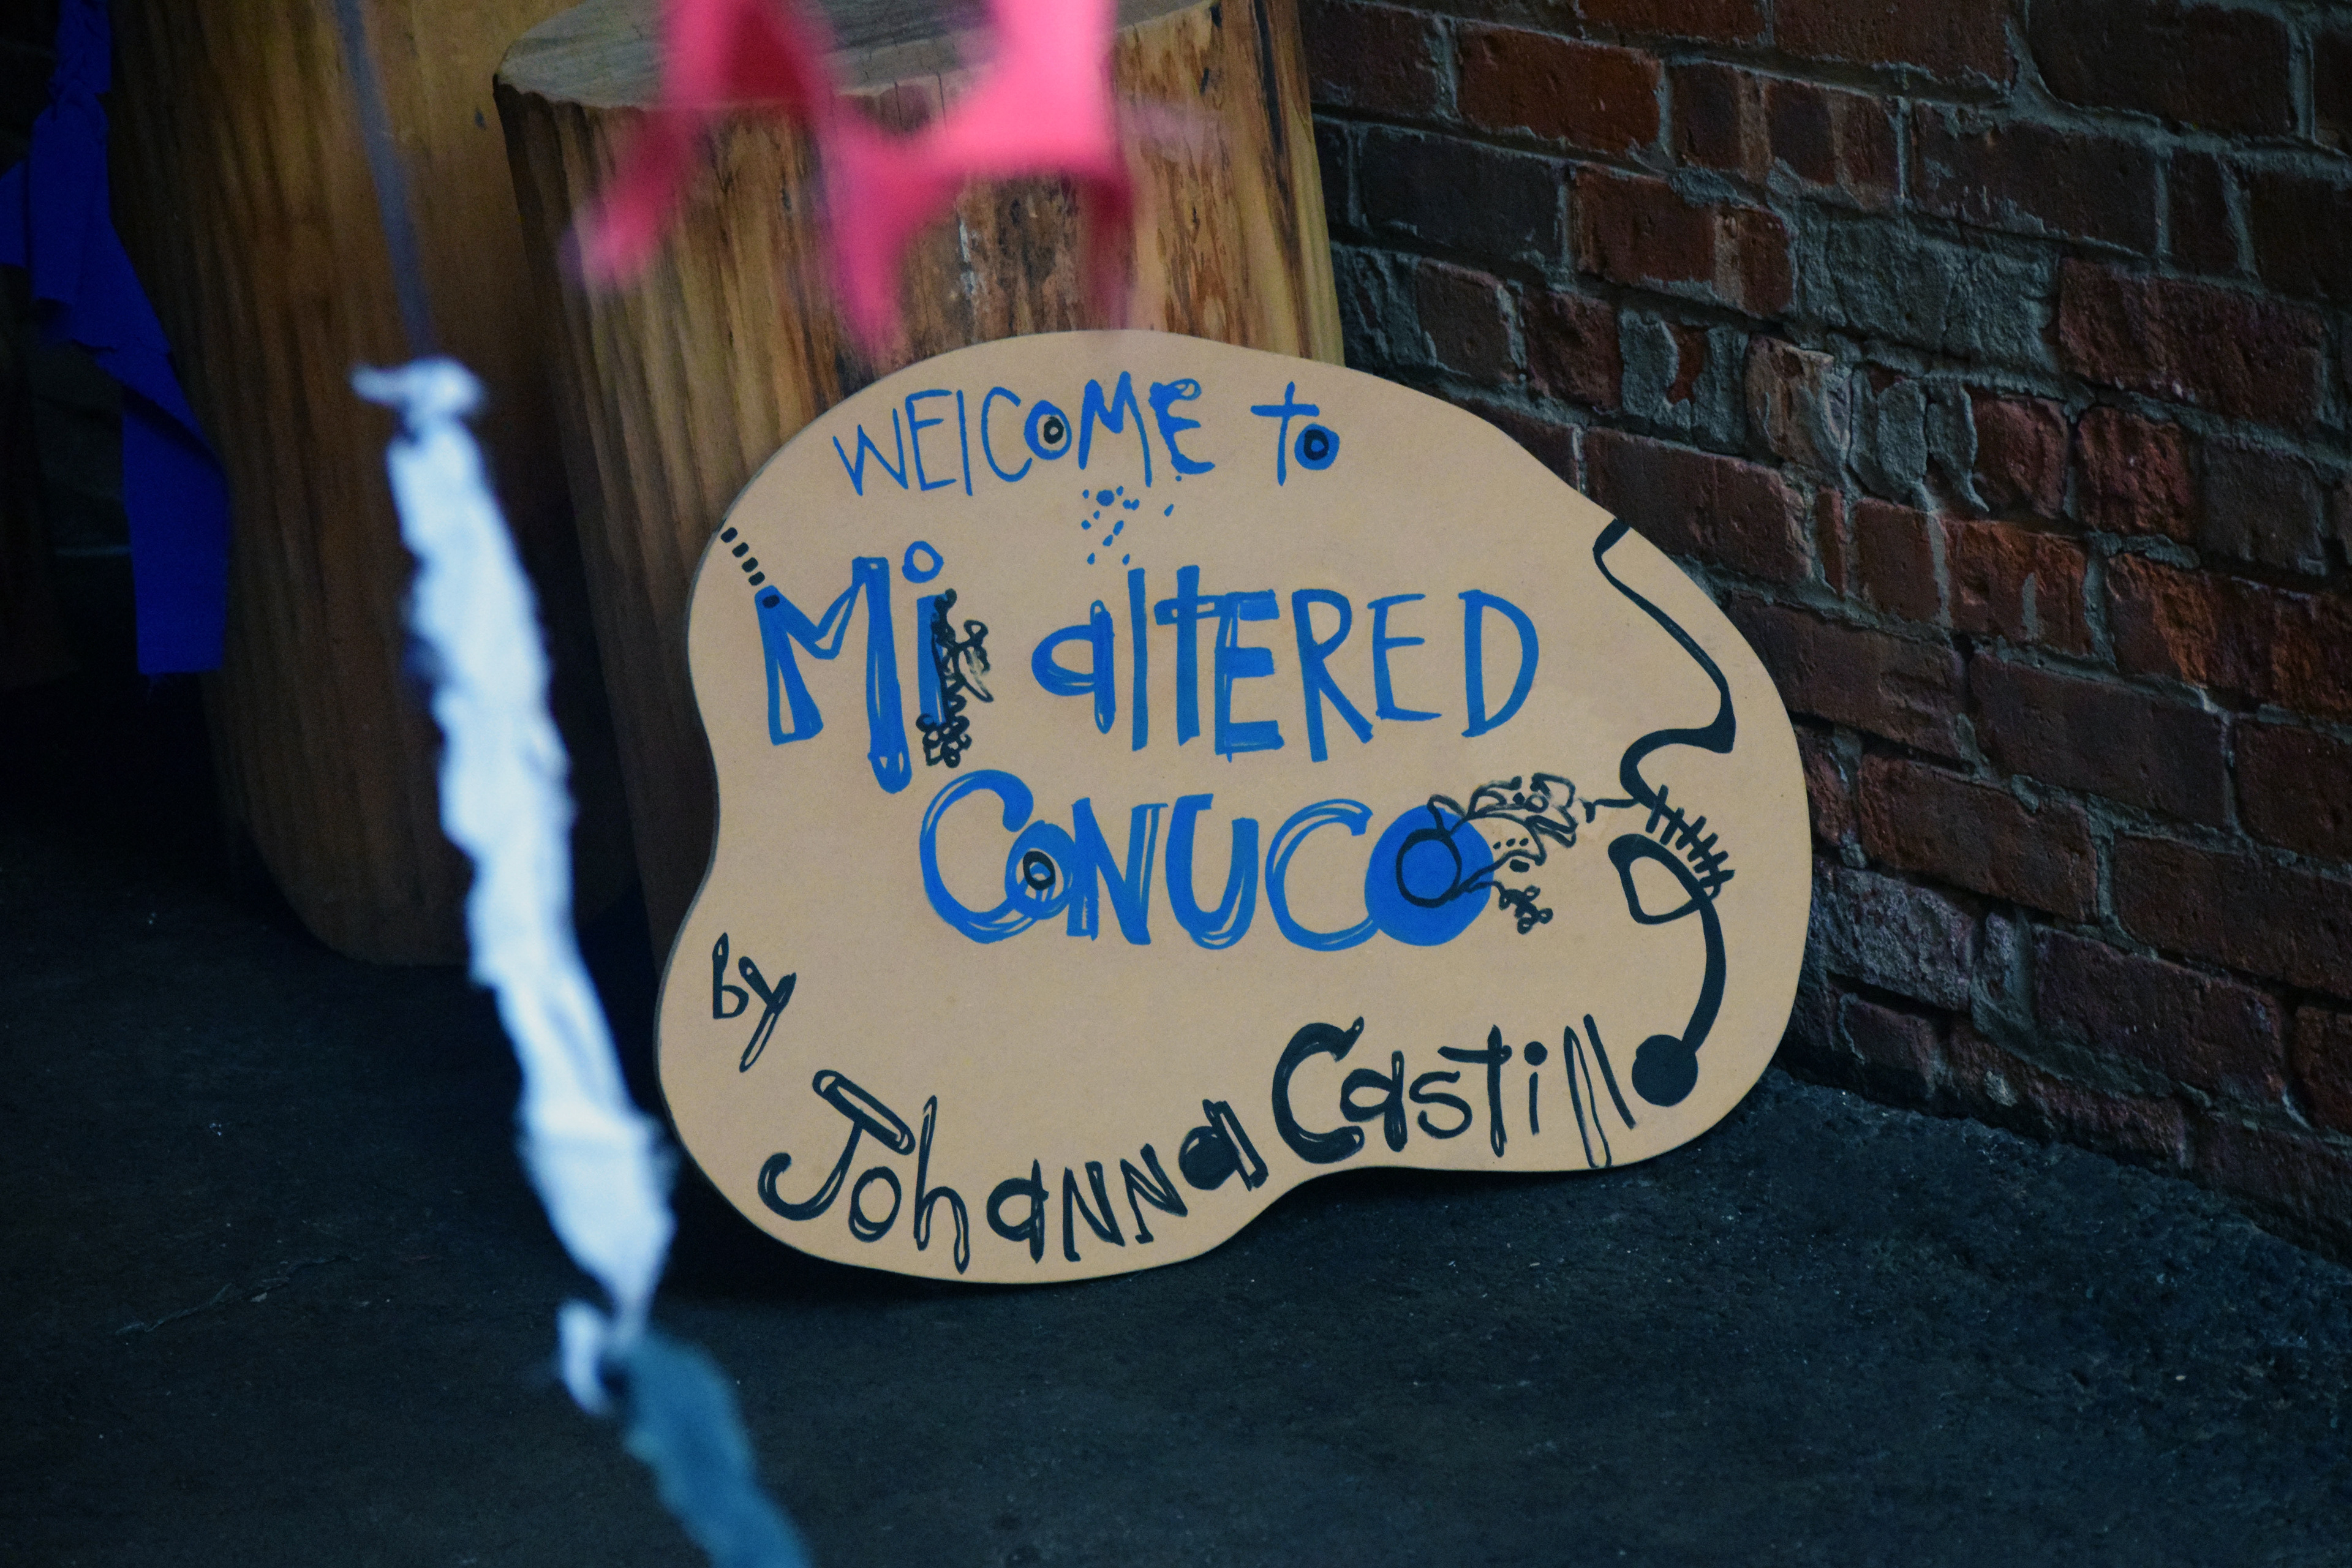 WElCOME to
Mi altERED
CONUCO
by
Johanna Castillo